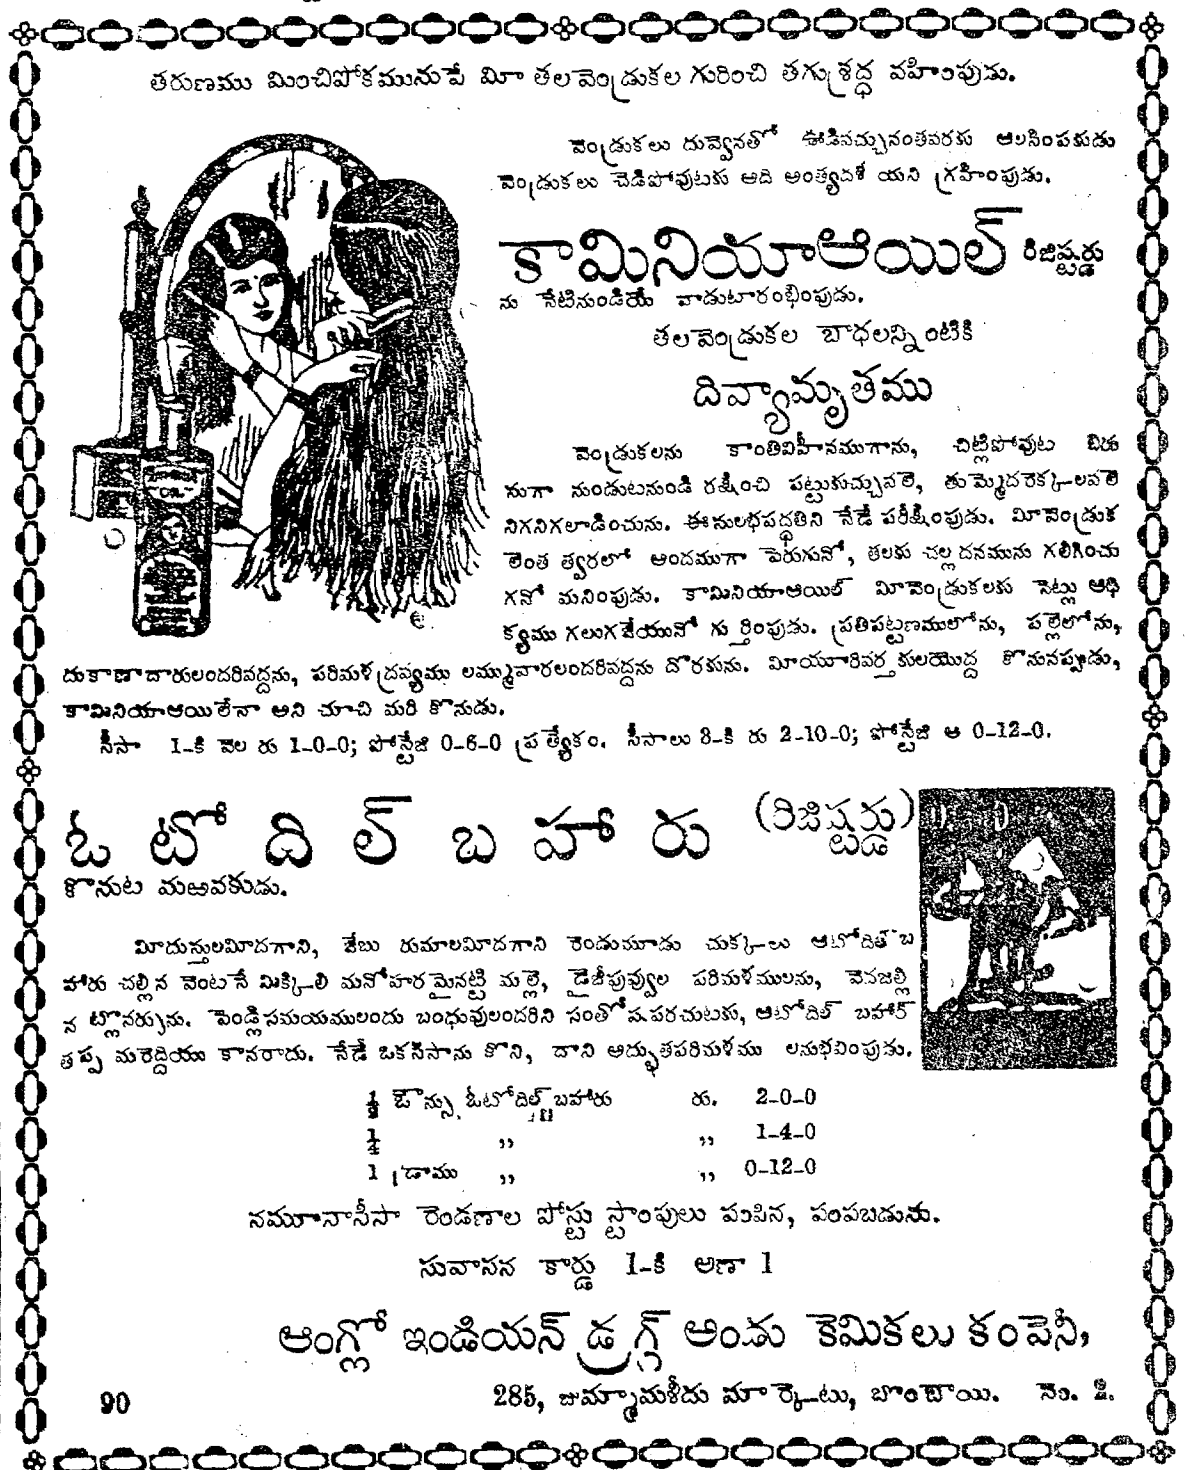 తరుణము మించిపోకమునుపే మీ తలవెండ్రుకల గురించి తగు శ్రద్ధ వహింపుడు.
వెండ్రుకలు దువ్వెనతో ఊడివచ్చునంతవరకు ఆలసింపకుడు
వెండ్రుకలు చెడిపోవుటకు ఆది అంత్యదశ యని గ్రహింపుడు.
కామినియాఆయిల్ రిజిష్టర్డు
ను నేటినుండియే వాడుటారంభింపుడు.
తలవెండ్రుకల బాధలన్నింటికి
దివ్యామృతము
వెండ్రుకలను కాంతివిహీనముగాను, చిట్లిపోవుట బిరు
సుగా నుండుటనుండి రక్షించి పట్టుకుచ్చువలె, తుమ్మెదరెక్కలవలె
నిగనిగలాడించును. ఈసులభపద్ధతిని నేడే పరీక్షింపుడు. మీవెండ్రుక
లెంత త్వరలో అందముగా పెరుగునో, తలకు చల్లదనమును గలిగించు
గనో మనింపుడు. కామినియాఆయిల్ మీవెండ్రుకలకు నెట్లు ఆధి
క్యము గలుగజేయునో గుర్తింపుడు. ప్రతిపట్టణములోను, పల్లెలోను,
దుకాణాదారులందరివద్దను, పరిమళద్రవ్యము లమ్మువారలందరివద్దను దొరకును. మీయూరివర్తకులయొద్ద కొనునప్పుడు,
కామినియాఆయిలేనా అని చూచి మరి కొనుడు.
సీసా 1-కి వెల రు 1-0-0; పోస్టేజి 0-6-0 ప్రత్యేకం. సీసాలు 3-కి రు 2-10-0; పోస్టేజి అ 0-12-0.
ఓటోదిల్బహారు (రిజిష్టర్డు)
కొనుట మఱవకుడు.
మీదుస్తులమీదగాని, జేబు రుమాలమీదగాని రెండుమూడు చుక్కలు ఆటోదిల్‌బ
హారు చల్లిన వెంటనే మిక్కిలి మనోహరమైనట్టి మల్లె, డైజీపువ్వుల పరిమళములను, వెదజల్లి
న ట్లొనర్చును. పెండ్లిసమయములందు బంధువులందరిని సంతోషపరచుటకు, ఆటోదిల్ బహార్
తప్ప మరెద్దియు కానరాదు. నేడే ఒకసీసాను కొని, దాని అద్భుతపరిమళము లనుభవింపుడు.
½ ఔన్సు ఓటోదిల్బహారు రు. 2-0-0
¼ ,, ,, 1-4-0
1 డ్రాము ,, ,, 0-12-0
నమూనాసీసా రెండణాల పోస్టు స్టాంపులు పంపిన, పంపబడును.
సువాసన కార్డు 1-కి అణా 1
ఆంగ్లో ఇండియన్ డ్రగ్గ్ అండు కెమికలు కంపెనీ,
90 285, జుమ్మామశీదు మార్కెటు, బొంబాయి. నెం. 2.